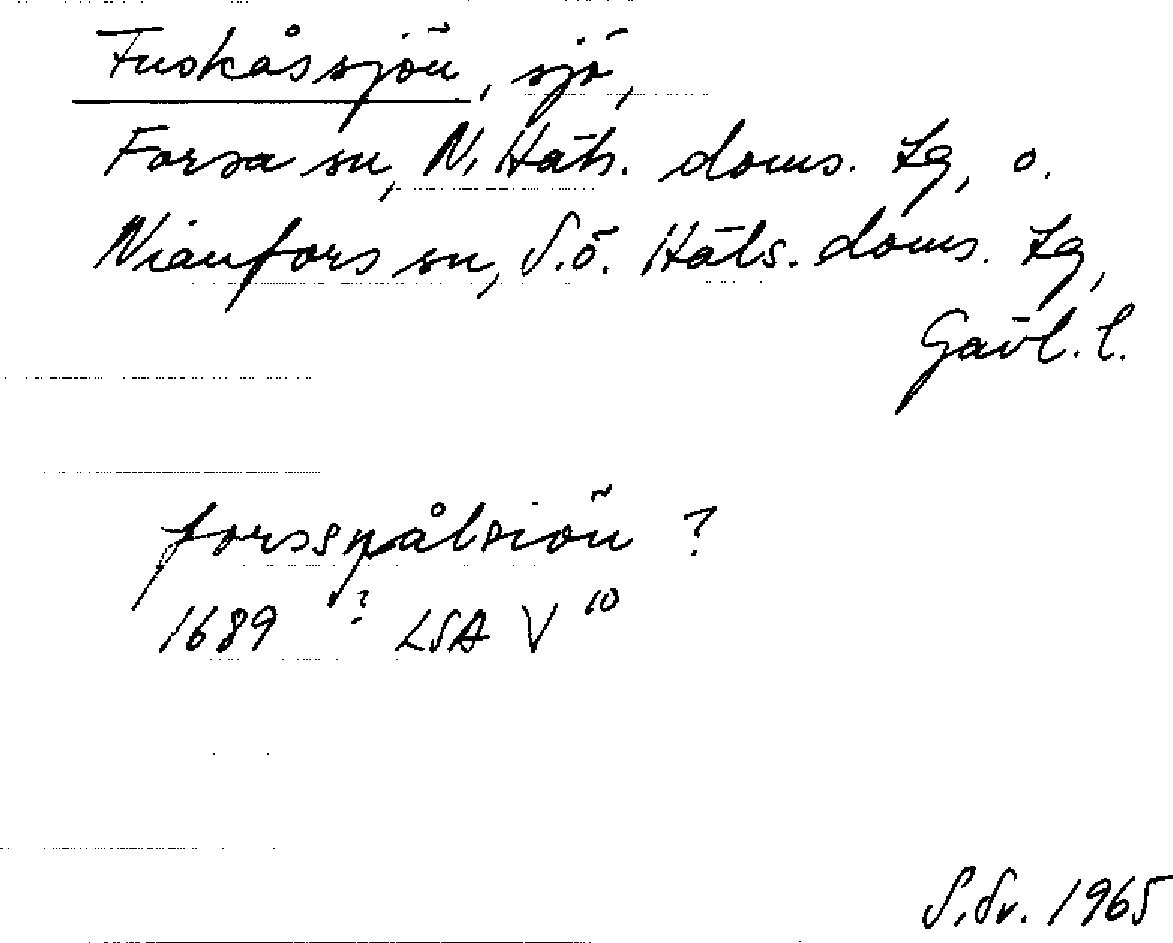 Fuskåssjön, sjö,
Forsa sn, N. Häls. doms. Lg, o.
Nianfors sn, S.ö. Häls. doms. Lg,
Gävl. l.
forsspålsiön ?
1689 ? LSA V 10
S. Sv. 1965